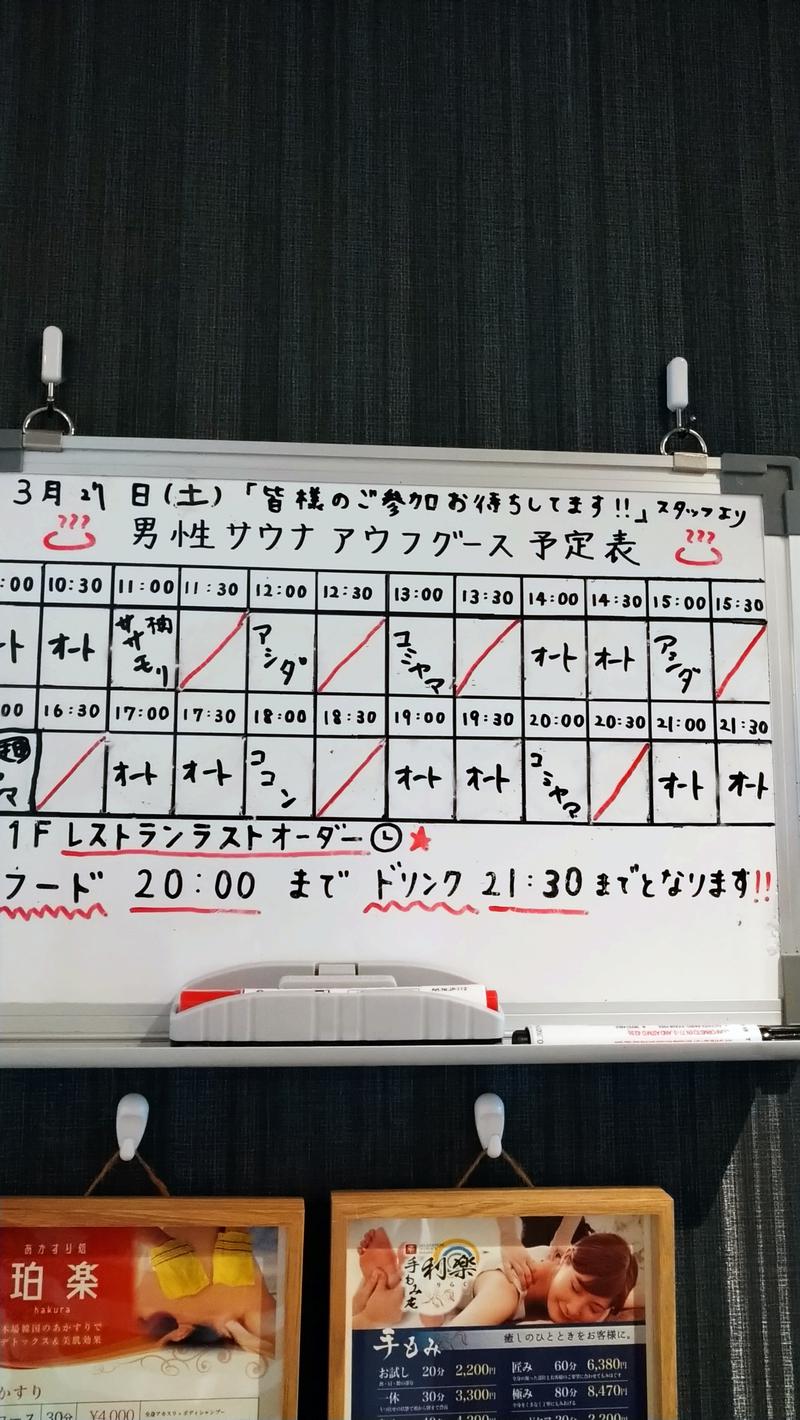 3月27日(土)「皆様のご参加お待ちしてます!!」スタッフより
男性サウナ アウフグース 予定表
:00 10:30 11:00 11:30 12:00 12:30 13:00 13:30 14:00 14:30 15:00 15:30
ート オート サササモリ アシダ コミヤマ オート オート アシダ
00 16:30 17:00 17:30 18:00 18:30 19:00 19:30 20:00 20:30 21:00 21:30
マ オート オート ココン オート オート コミヤマ オート オート
1F レストランラストオーダー
フード 20:00 まで ドリンク 21:30 までとなります!!
あかすり処
珀楽
hakura
本場韓国のあかすりで
デトックス&美肌効果
かすり
コース 30分 ¥4,000 全身アカスリ+ボディシャンプー
手もみ処
利楽
りらく
手もみ 癒しのひとときをお客様に。
お試し 20分 2,200円 匠み 60分 6,380円
一休 30分 3,300円 極み 80分 8,470円